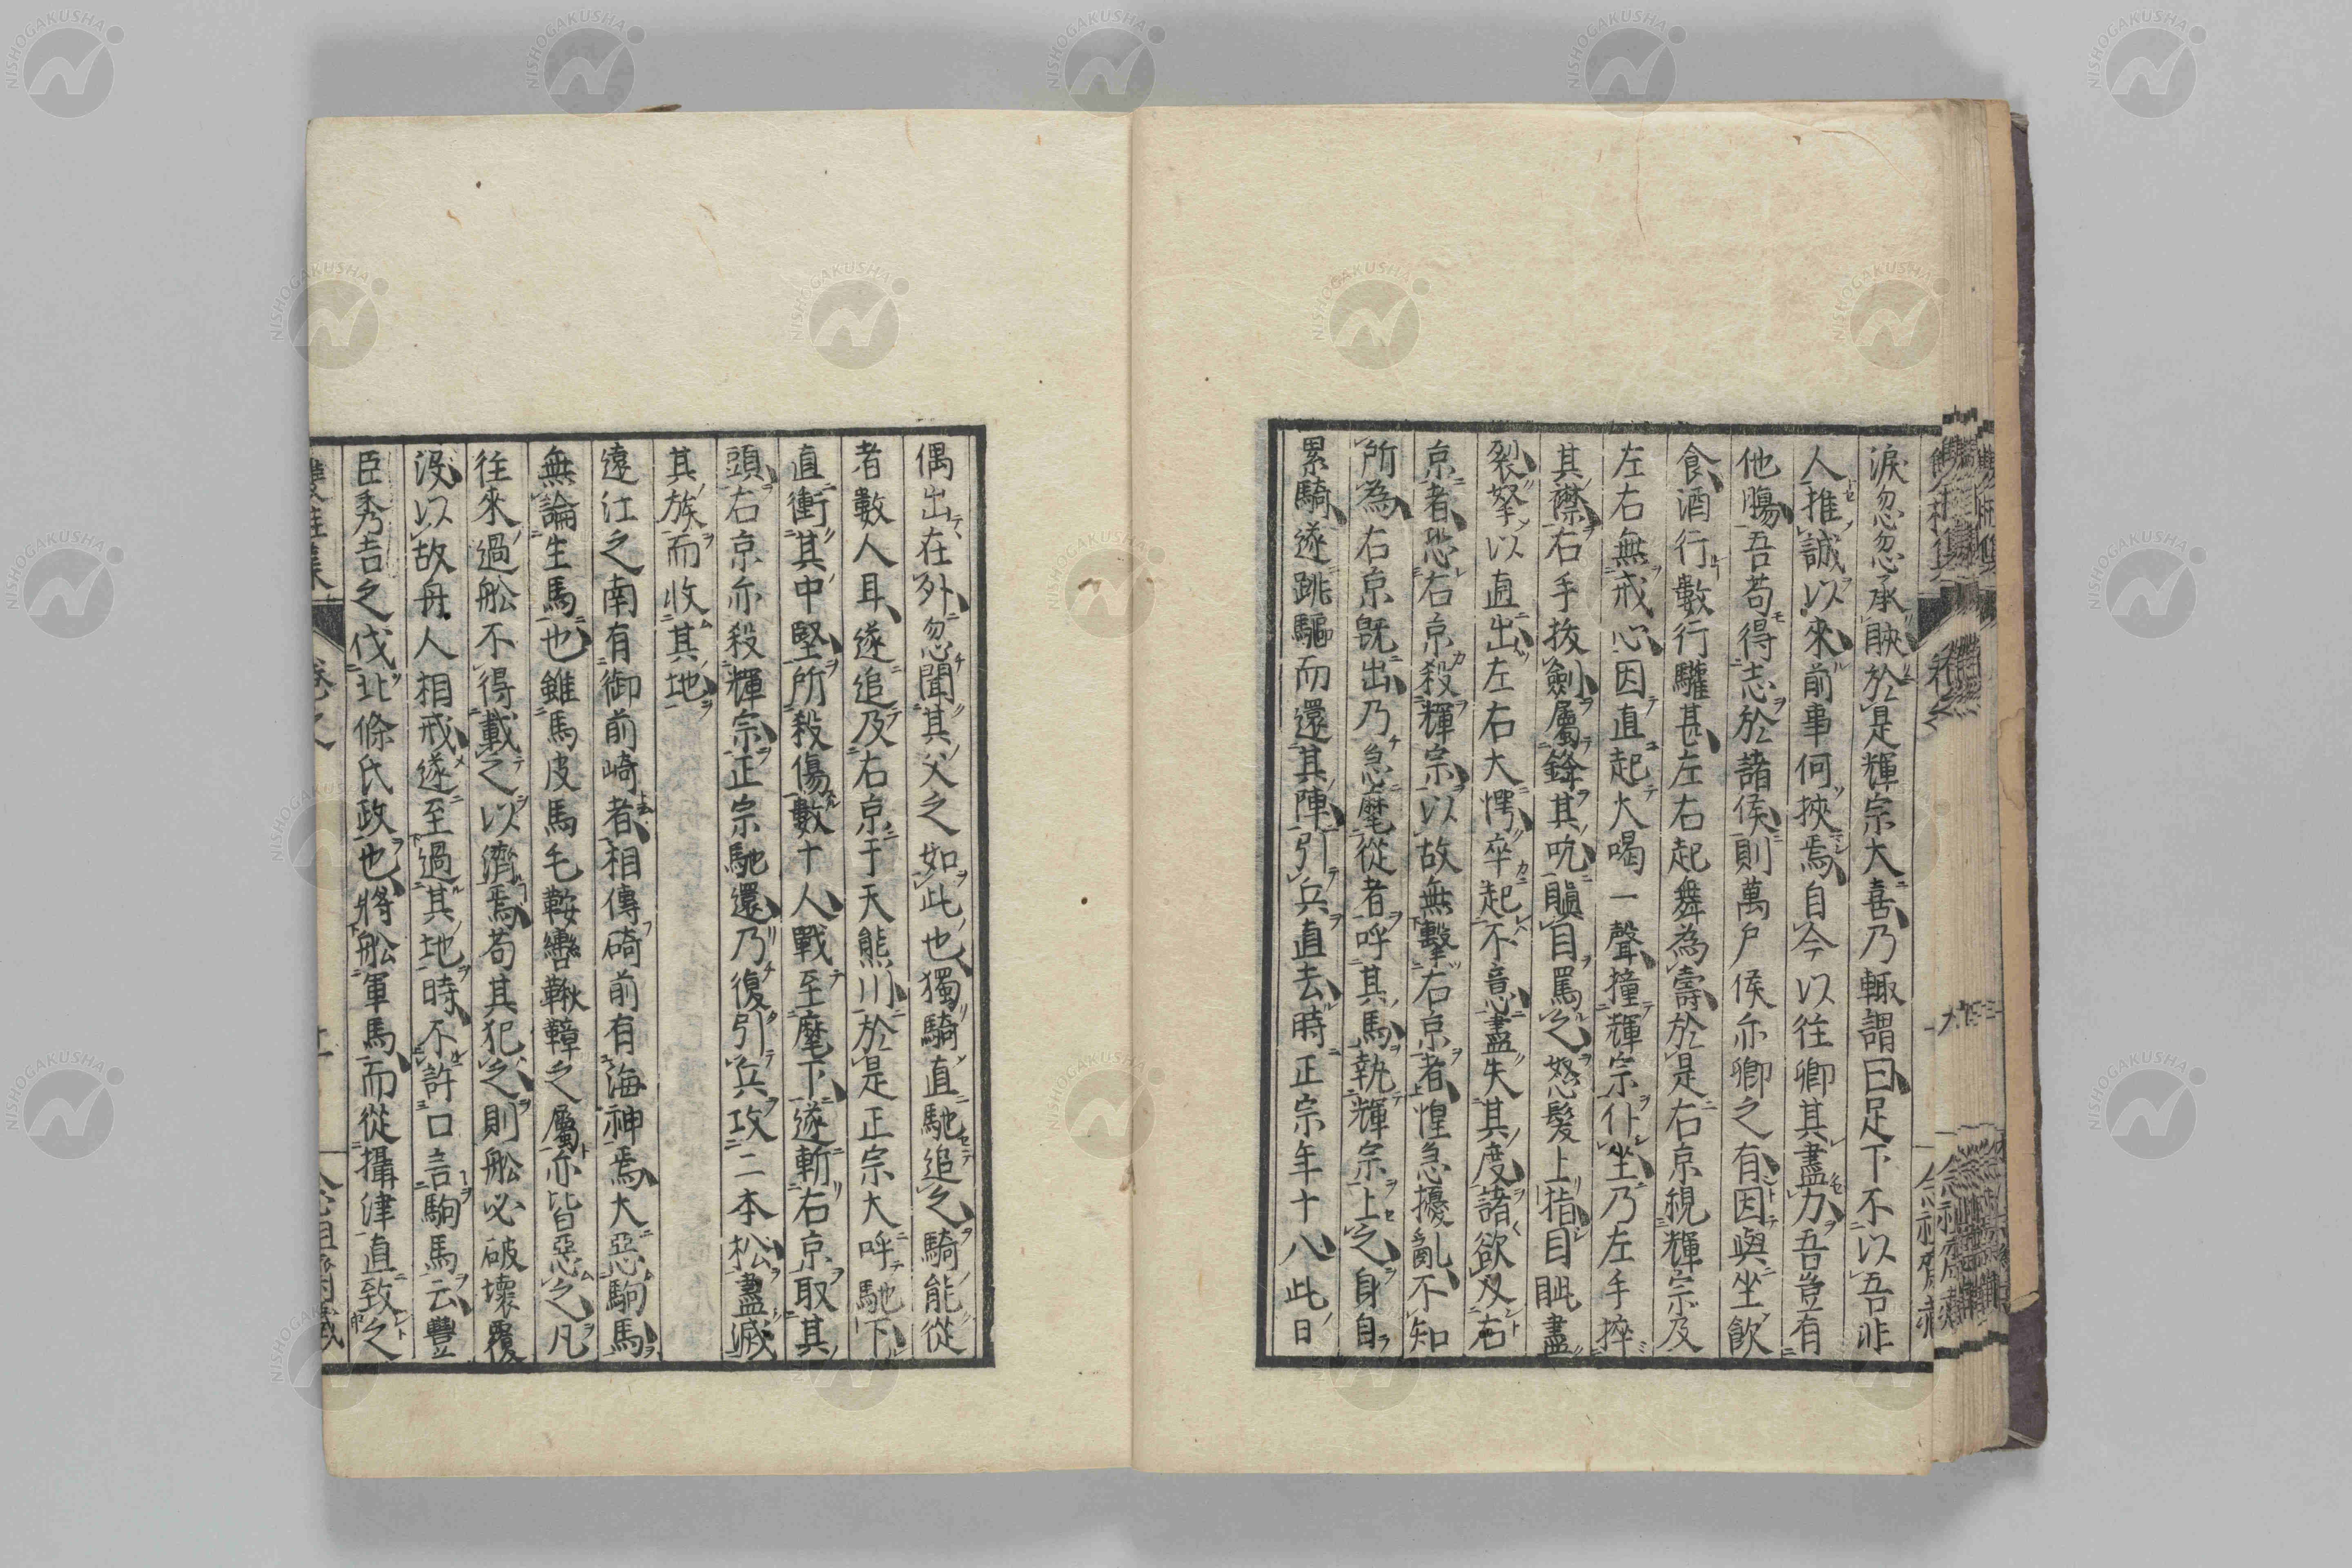 淚忽忽承䀹於是輝宗大喜乃輙謂曰足下不以吾非
人推誠以來前事何挾焉自今以往卿其盡力吾豈有
他膓吾苟得志於諸侯則萬戶侯亦卿之有因與坐飮
食酒行數行驩甚左右起舞為壽於是右京視輝宗及
左右無戒心因直起大喝一聲撞輝宗仆坐乃左手捽
其襟右手拔劍屬鋒其吭瞋目罵之怒髮上指目眦盡
裂拏以直出左右大愕卒起不意盡失其度諸欲及右
京者恐右京殺輝宗以故無擊右京者惶急擾亂不知
所為右京旣出乃急麾從者呼其馬執輝宗上之身自
累騎遂跳驅而還其陣引兵直去時正宗年十八此日
偶出在外忽聞其父之如此也獨騎直馳追之騎能從
者數人耳遂追及右京于天熊川於是正宗大呼馳下
直衝其中堅所殺傷數十人戰至麾下遂斬右京取其
頭右京亦殺輝宗正宗馳還乃復引兵攻二本松盡滅
其族而收其地
遠江之南有御前崎者相傳碕前有海神焉大惡駒馬
無論生馬也雖馬皮馬毛鞍轡鞦鞾之屬亦皆惡之凡
往來過舩不得載之以濟焉苟其犯之則舩必破壞覆
沒以故舟人相戒遂至過其地時不許口言駒馬云豐
臣秀吉之伐北條氏政也將舩軍馬而從攝津直致之